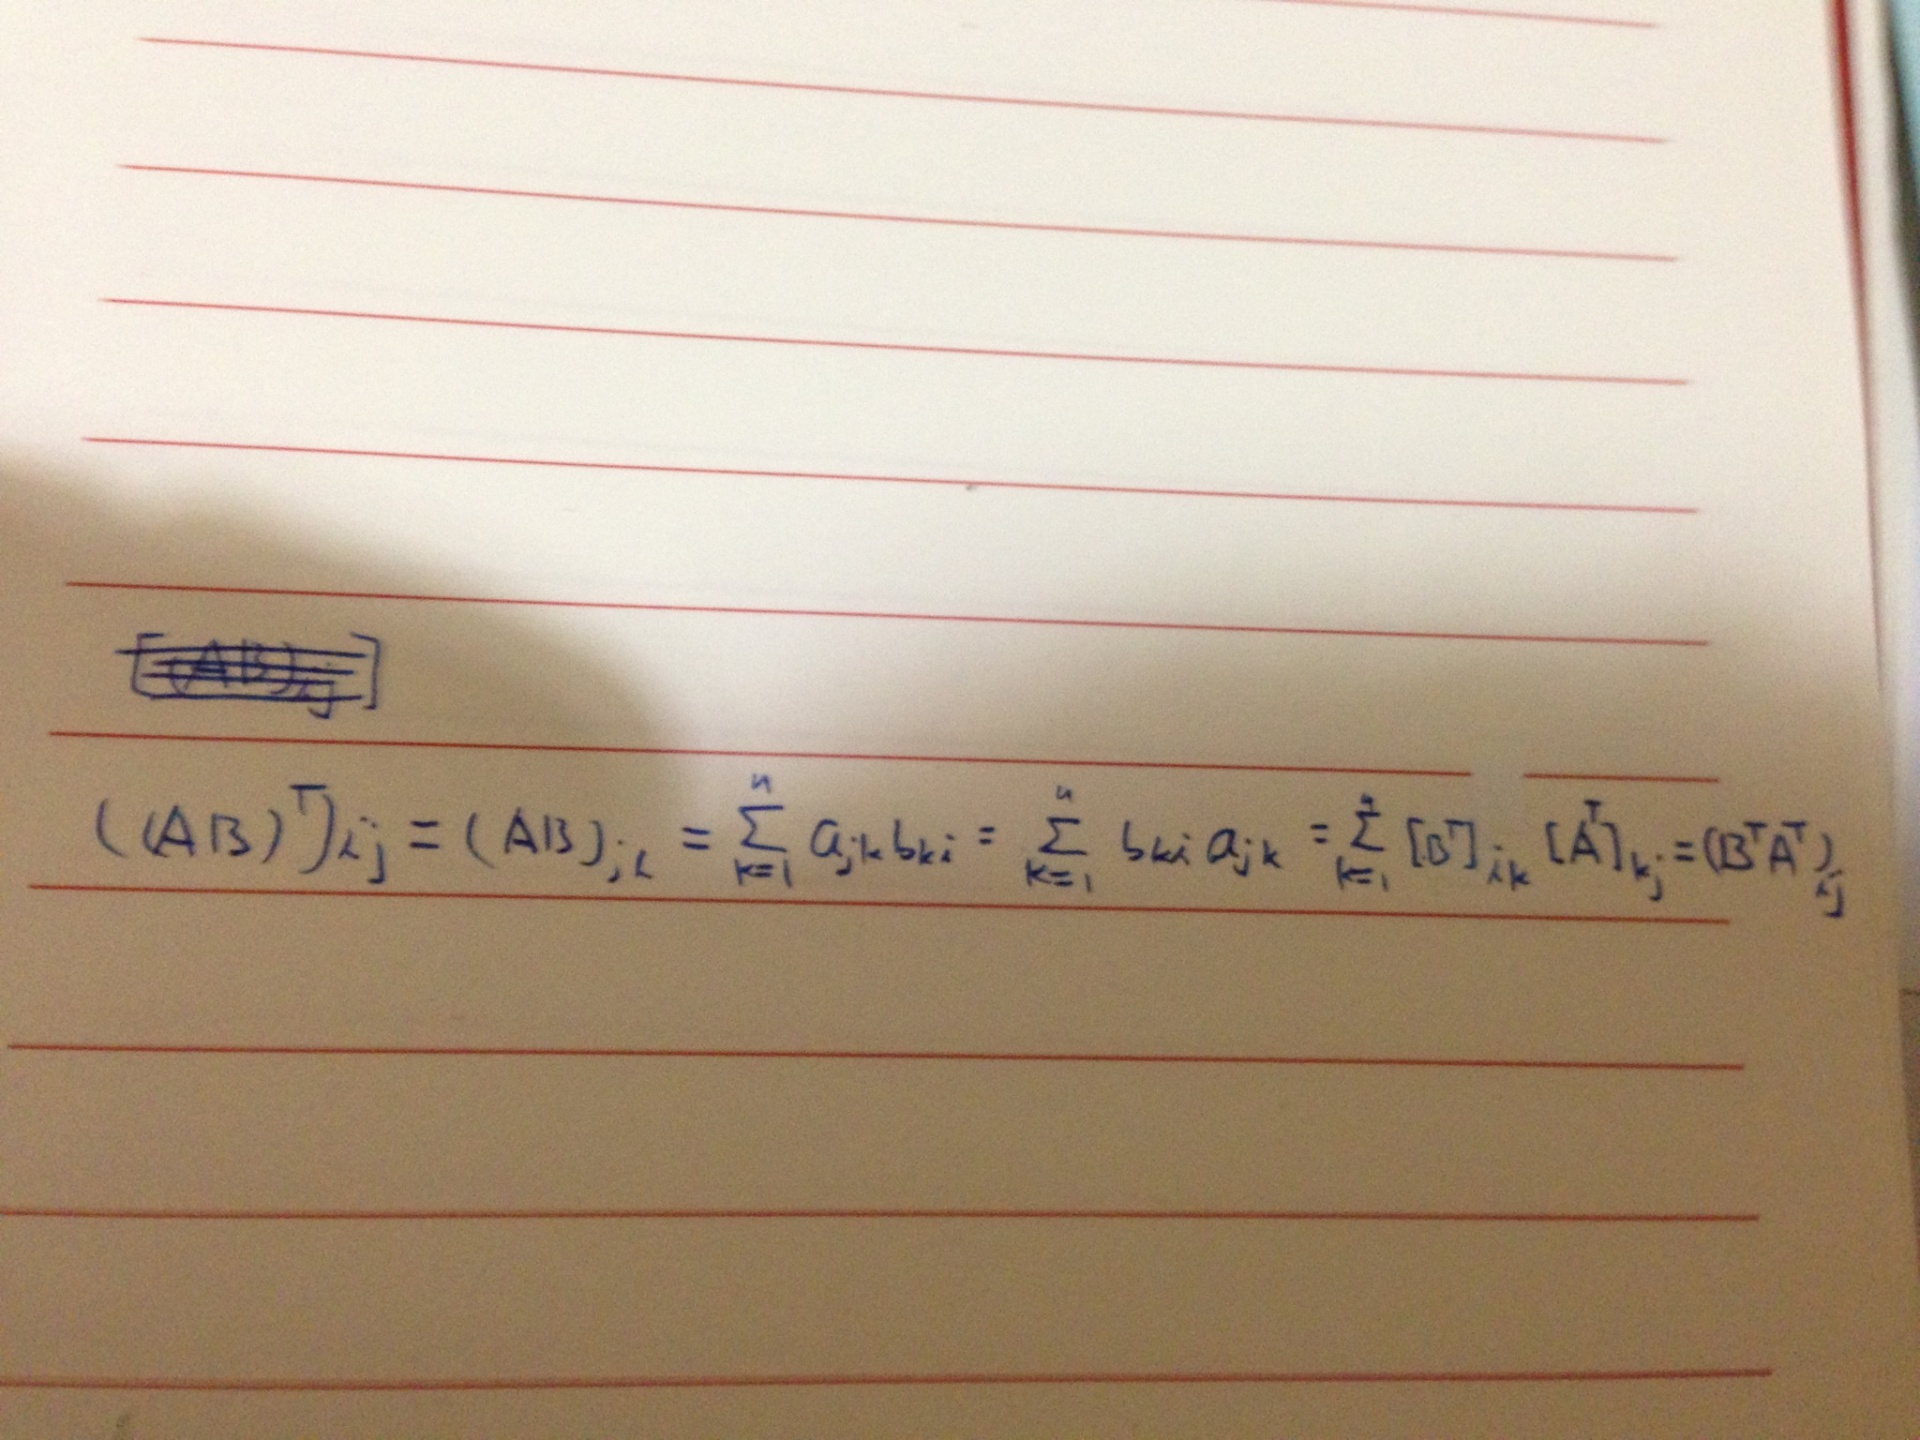 [(AB)ij]
((AB)ᵀ)ij = (AB)ji = ∑ⁿk=1 ajk bki = ∑ⁿk=1 bki ajk = ∑ⁿk=1 [Bᵀ]ik [Aᵀ]kj = (BᵀAᵀ)ij